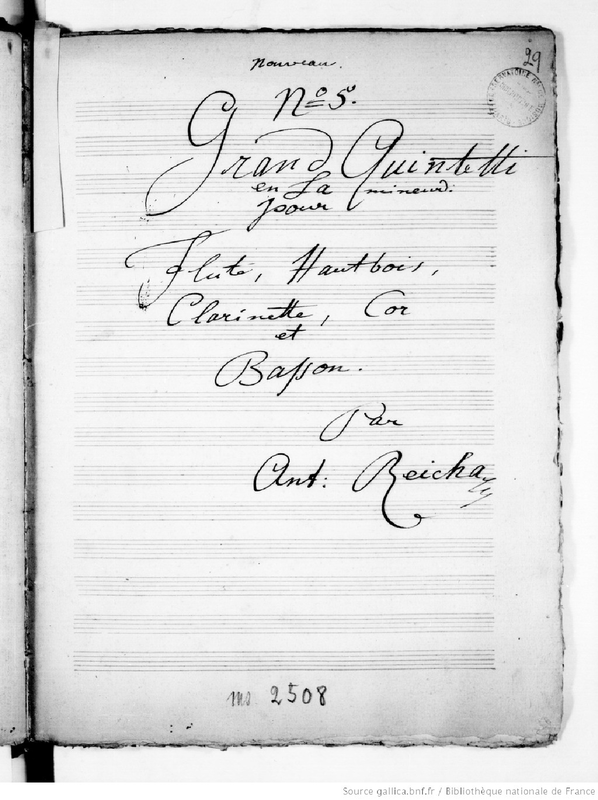 29
Nouveau.
No 5.
Grand Quintetti
en La mineur:
pour
Flute, Hautbois,
Clarinette, Cor
et
Baſson.
Par
Ant: Reicha
ms 2508
Source gallica.bnf.fr / Bibliothèque nationale de France